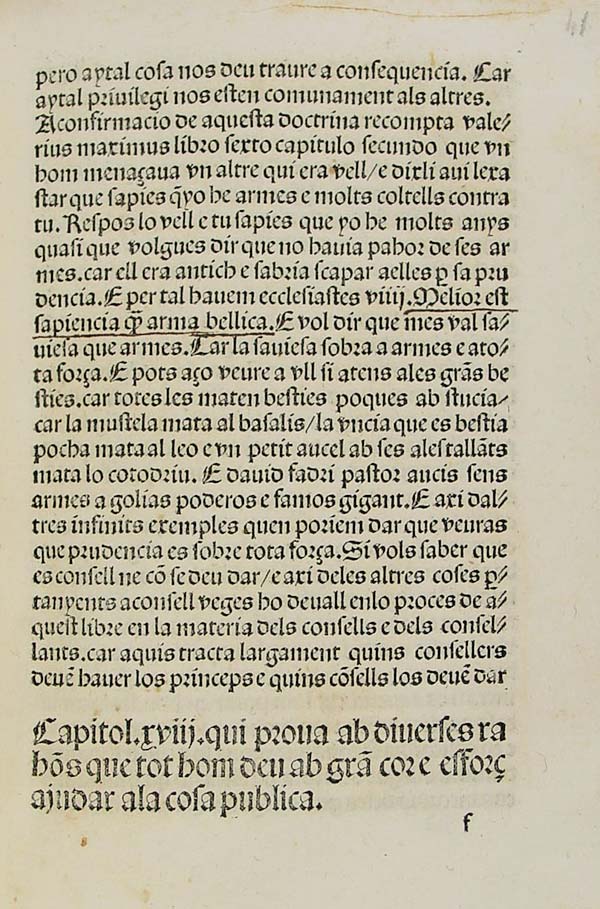 41
pero aytal cosa nos deu traure a consequencia. Car
aytal priuilegi nos esten comunament als altres.
A confirmacio de aquesta doctrina recompta vale/
rius maximus libro sexto capitulo secundo que vn
hom menaçaua vn altre qui era vell/e dixli aui lexa
star que sapies q̃ yo he armes e molts coltells contra
tu. Respos lo vell e tu sapies que yo he molts anys
quasi que volgues dir que no hauia pahor de ses ar
mes. car ell era antich e sabria scapar a elles ꝑ sa pru
dencia. E per tal hauem ecclesiastes viiij. Melior est
sapiencia q̃ȝ arma bellica. E vol dir que mes val sa/
uiesa que armes. Car la sauiesa sobra a armes e a to/
ta força. E pots aço veure a vll si atens a les grãs be
sties. car totes les maten besties poques ab stucia/
car la mustela mata al basalis/la vncia que es bestia
pocha mata al leo e vn petit aucel ab ses ales tallãts
mata lo cotodriu. E dauid fadri pastor aucis sens
armes a golias poderos e famos gigant. E axi dal/
tres infinits exemples quen poriem dar que veuras
que prudencia es sobre tota força. Si vols saber que
es consell ne cõ se deu dar/e axi deles altres coses ꝑ/
tanyents a consell veges ho deuall enlo proces de a/
quest libre en la materia dels consells e dels consel/
lants. car aquis tracta largament quins consellers
deuẽ hauer los princeps e quins cõsells los deuẽ dar
Capitol.xviij.qui proua ab diuerses ra
hõs que tot hom deu ab grã cor e esforç
ajudar ala cosa publica.
f